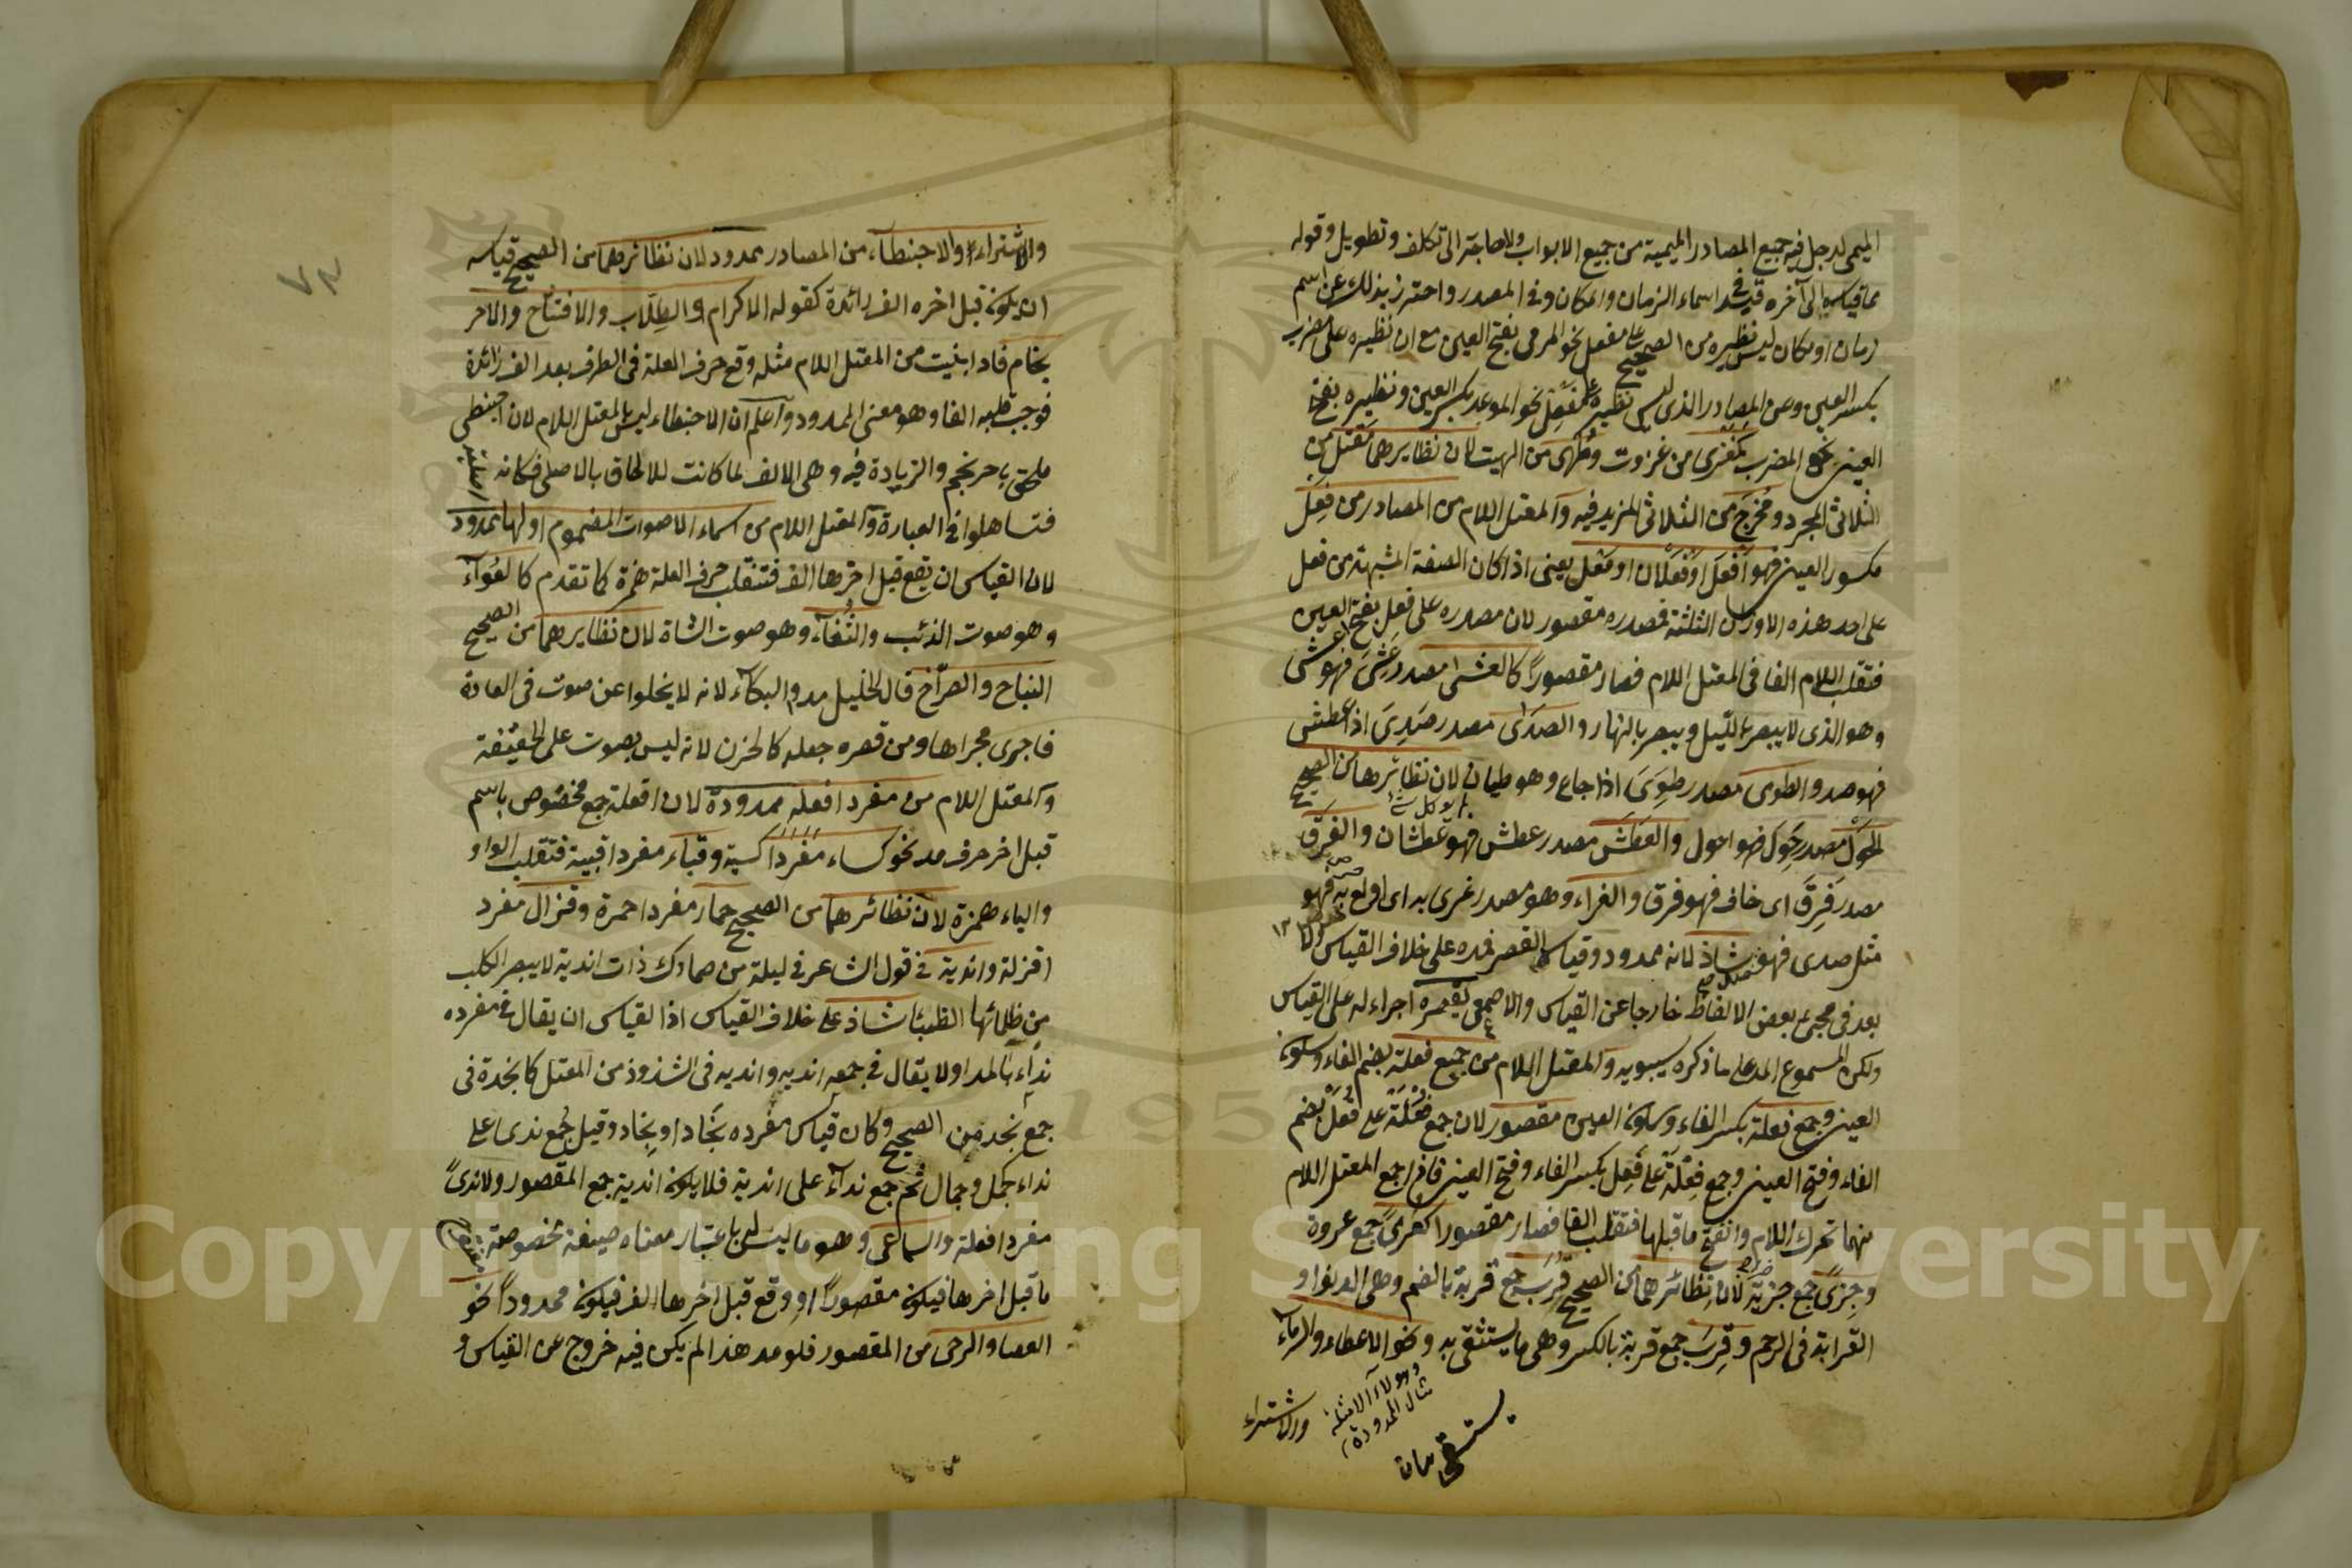 الميمى لدخل فيه جميع المصادر الميمية من جميع الابواب ولا حاجة الى تكلف وتطويل وقوله
مما قياسه الى آخره قيد فى اسماء الزمان والمكان وفى المصدر واحترز بذلك عن اسم
زمان او مكان ليس نظيره من الصحيح على مفعل نحو المرمى بفتح العين مع ان نظيره على مضرب
بكسر العين وعن المصادر الذى ليس نظيره على مفعل نحو الموعد بكسر العين ونظيره بفتح
العين نحو المضرب كمغزى من غزوت وملهى من الهيت لان نظايرهما مقتل من
الثلاثى المجرد ومخرج من الثلاثى المزيد فيه والمعتل اللام من المصادر من فعل
مكسور العين فهو افعل او فعلان او فعل يعنى اذا كان الصفة المشبهة من فعل
على احد هذه الاوزان الثلثة فمصدره مقصور لان مصدره على فعل بفتح العين
فتقلب اللام الفا فى المعتل اللام فصار مقصورا كالعشى مصدر عشى فهو اعشى
وهو الذى لا يبصر بالليل ويبصر بالنهار والصدى مصدر صدى اذا عطش
فهو صد والطوى مصدر طوى اذا جاع وهو طيان لان نظائرها من الصحيح
الحول مصدر حول فهو احول والعطش مصدر عطش فهو عطشان والفرق
مصدر فرق اى خاف فهو فرق والغراء وهو مصدر غرى به اى اولع به فهو
مثل صدى فهو شاذ لانه ممدود وقياسه القصر فمده على خلاف القياس
بعد فى مجئ بعض الالفاظ خارجا عن القياس والاصمعى يقصره اجراء له على القياس
ولكن المسموع المد على ما ذكره سيبويه والمعتل اللام من جميع فعلة بضم الفاء وسكون
العين وجمع فعلة بكسر الفاء وسكون العين مقصور لان جمع فعلة على فعل بضم
الفاء وفتح العين وجمع فعلة على فعل بكسر الفاء وفتح العين فاذا جمع المعتل اللام
منهما تحرك اللام وانفتح ما قبلها فتقلب الفا فصار مقصورا كعرى جمع عروة
وجزى جمع جزية لان نظائرهما من الصحيح قرب جمع قربة بالضم وهى الدنو او
القرابة فى الرحم وقرب جمع قربة بالكسر وهى ما يستقى به ونحو الاعطاء والرماء
وهؤلاء الامثلة
مثال الممدودة
والاشتراء
٧٣
والاشتراء والاحبنطاء من المصادر ممدود لان نظائرهما من الصحيح قياسه
ان يكون قبل اخره الف زائدة كقوله الاكرام والطلاب والافتتاح والاحر
نجام فاذا بنيت من المعتل اللام مثله وقع حرف العلة فى الطرف بعد الف زائدة
فوجب قلبه الفا وهو معنى الممدود واعلم ان الاحبنطاء ليس بالمعتل اللام لان احبنطى
ملحق باحرنجم والزيادة فيه وهى الالف لما كانت للالحاق بالاصلى فكانه
فتساهلوا فى العبارة والمعتل اللام من اسماء الاصوات المضموم اولها ممدود
لان القياس ان يقع قبل اخرها الف فتنقلب حرف العلة همزة كما تقدم كالعواء
وهو صوت الذئب والثغاء وهو صوت الشاة لان نظايرهما من الصحيح
النباح والصراخ قال الخليل مدوا البكاء لانه لا يخلوا عن صوت فى العادة
فاجرى مجراها ومن قصره جعله كالحزن لانه ليس بصوت على الحقيقة
والمعتل اللام من مفرد افعلة ممدودة لان افعلة جمع مخصوص باسم
قبل اخر حرف مد نحو كساء مفرد اكسية وقباء مفرد اقبية فتقلب الواو
والياء همزة لان نظائرهما من الصحيح حمار مفرد احمرة وقذال مفرد
اقذلة واندية فى قول الشاعر فى ليلة من جمادى ذات اندية لا يبصر الكلب
من ظلمائها الطنبا شاذ على خلاف القياس اذ القياس ان يقال فى مفرده
نداء بالمد اولا يقال فى جمعه اندية واندية فى الشذوذ من المعتل كانجدة فى
جمع نجد من الصحيح وكان قياس مفرده نجادا او نجاد وقيل جمع ندى على
نداء كجمل وجمال ثم جمع نداء على اندية فلا يكون اندية جمع المقصور ولا ندى
مفرد افعلة والسماعى وهو ما ليس له باعتبار معناه صيغة مخصوصة
ما قبل اخرها فيكون مقصورا او وقع قبل اخرها الف فيكون ممدودا نحو
العصا والرحى من المقصور فلو مد هذا لم يكن فيه خروج عن القياس و
Copyright © King Saud University
195